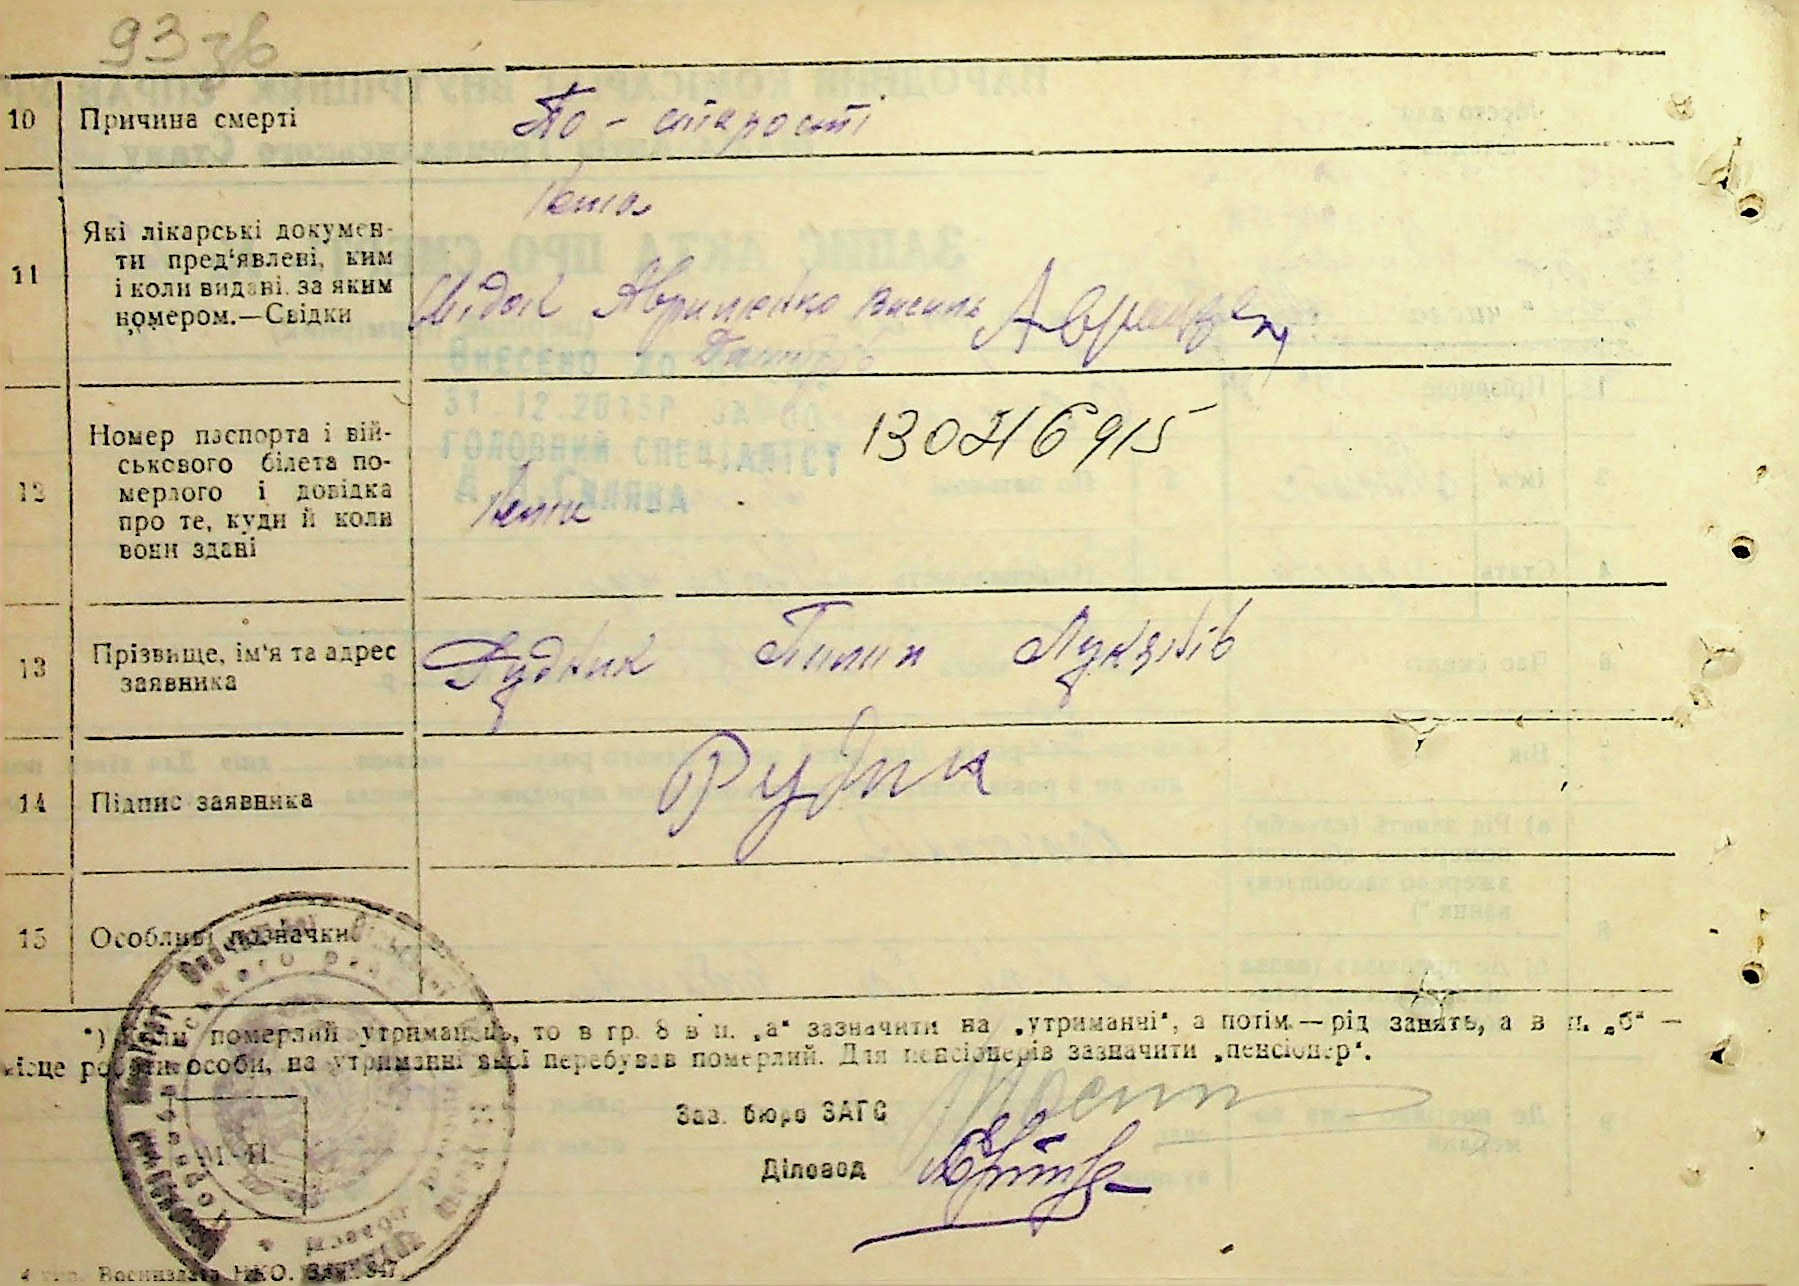 93 зв
10 Причина смерті По - старості
Нема
11 Які лікарські докумен-
ти пред'явлені, ким
і коли видані за яким
номером.—Свідки
Свідок Авраменко Василь
Внесено до
31.12.2015р
ГОЛОВНИЙ СПЕЦІАЛІСТ
130 H 6915
12 Номер паспорта і вій-
ськового білета по-
мерлого і довідка
про те, куди й коли
вони здані
Нема
13 Прізвище, ім'я та адрес
заявника
Рудник Пилип Лукянів
14 Підпис заявника Рудник
15 Особливі позначки
*) Коли померлий утриманець, то в гр. 8 в п. „а“ зазначити на „утриманні“, а потім — рід занять, а в п. „б“ —
місце роботи особи, на утриманні якої перебував померлий. Для пенсіонерів зазначити „пенсіонер“.
Зав. бюро ЗАГС
Діловод
М. П.
Воениздата НКО. Зак. 347